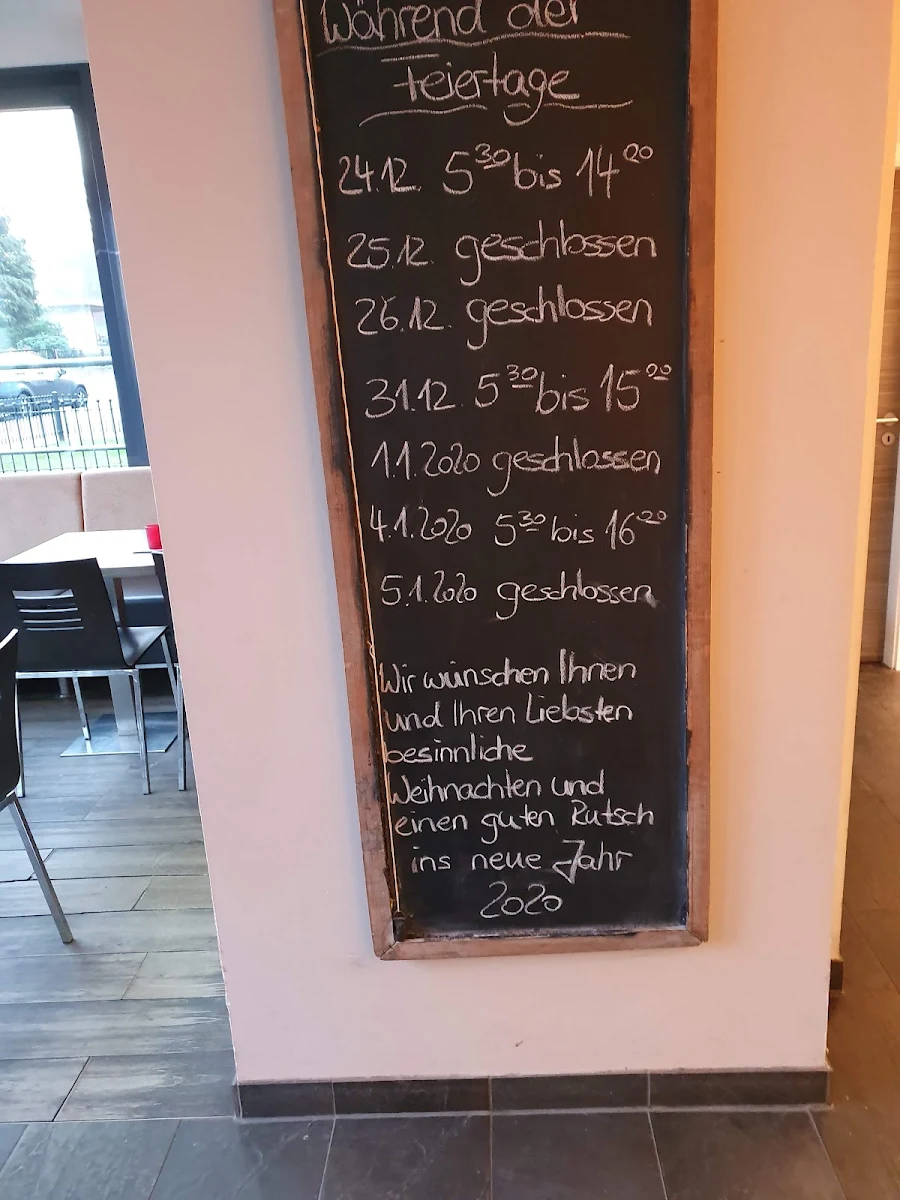 Während der
Feiertage
24.12. 5³⁰ bis 14⁰⁰
25.12. geschlossen
26.12. geschlossen
31.12. 5³⁰ bis 15⁰⁰
1.1.2020 geschlossen
4.1.2020 5³⁰ bis 16⁰⁰
5.1.2020 geschlossen
Wir wünschen Ihnen
und Ihren Liebsten
besinnliche
Weihnachten und
einen guten Rutsch
ins neue Jahr
2020